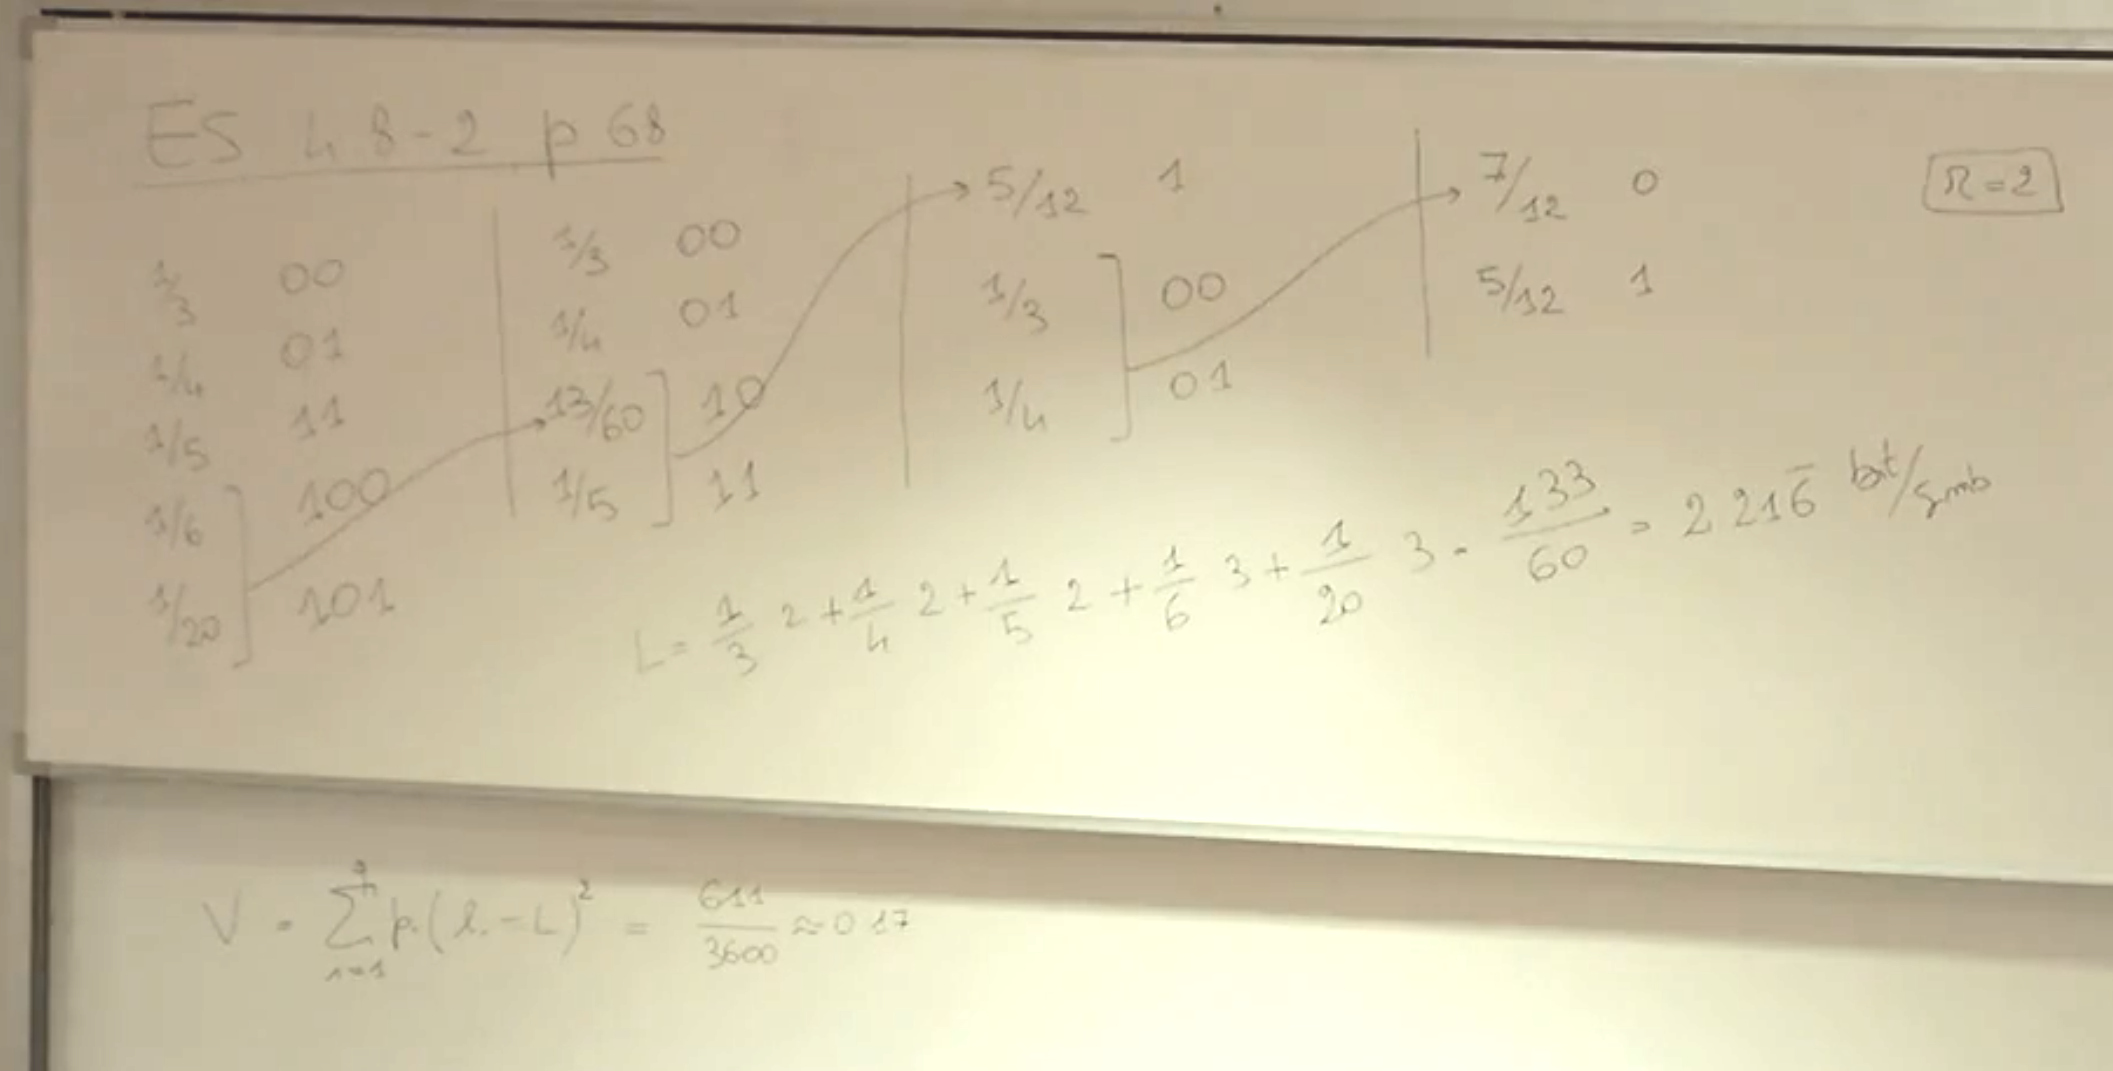 ES 4 8-2 p 68
r=2
1/3 00
1/4 01
1/5 11
1/6 100
1/20 101
1/3 00
1/4 01
13/60 10
1/5 11
5/12 1
1/3 00
1/4 01
7/12 0
5/12 1
L = 1/3 2 + 1/4 2 + 1/5 2 + 1/6 3 + 1/20 3 = 133/60 = 2 216̅ bit/simb
V = ∑ i=1 q pi (li - L)² = 611/3600 ≈ 0 17